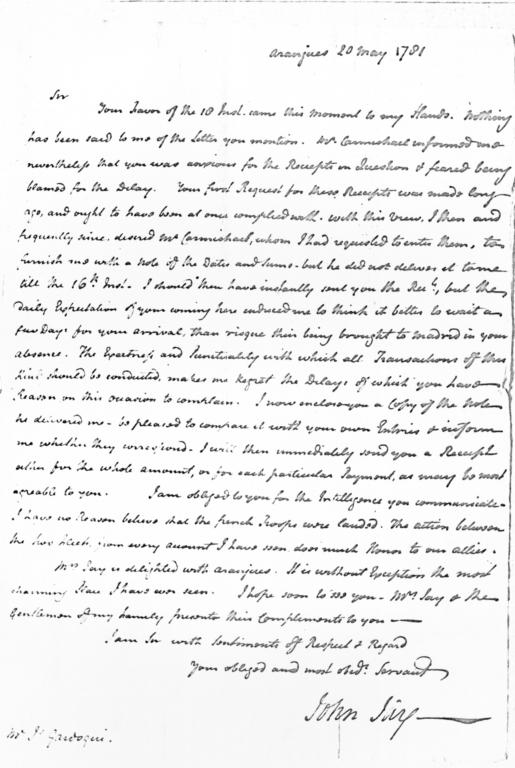 Aranjues 20 May 1781
Sir
Your Favor of the 18 Inst. came this moment to my Hands. Nothing
has been said to me of the Letter you mention. Mr. Carmichael informed me
nevertheless that you was anxious for the Receipts in Question & feared being
blamed for the Delay. Your first Request for these Receipts was made long
ago, and ought to have been at once complied with. with this View, I then and
frequently since desired Mr Carmichael, whom I had requested to enter them, to
furnish me with a Note of the Dates and Sums - but he did not deliver it to me
till the 16th. Inst. - I should then have instantly sent you the Rects, but the
Daily Expectation of your coming here induced me to think it better to wait a
few Days for your arrival, than risque their being brought to Madrid in your
absence. The Exactness and Punctuality with which all Transactions of this
kind should be conducted, makes me Regret the Delays of which you have
Reason on this occasion to complain. I now enclose you a Copy of the Note
he delivered me - be pleased to compare it with your own Entries & inform
me whether they correspond - I will then immediately send you a Receipt
either for the whole amount, or for each particular Payment, as may be most
agreable to you. I am obliged to you for the Intelligence you communicate -
I have no Reason believe that the french Troops were landed. The action between
the two fleets, from every account I have seen, does much Honor to our allies.
Mrs Jay is delighted with aranjues. It is without Exception the most
charming Place I have ever seen. I hope soon to see you - Mrs Jay & the
Gentlemen of my family presents their Compliments to you -
I am Sr with Sentiments of Respect & Regard
Your obliged and most obdt. Servant
John Jay
Mr Js Gardoqui.